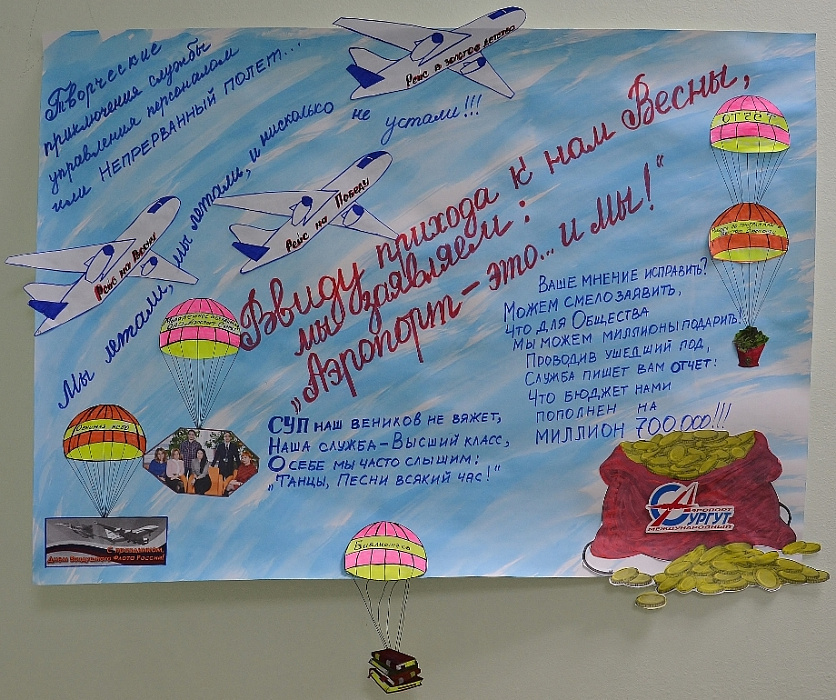 Творческие
приключения службы
управления персоналом
или НЕПРЕРВАННЫЙ ПОЛЕТ...
Рейс в золотое детство
Мы летали, мы летали, и нисколько не устали!!!
Рейс на Весну
Рейс на Победу
Ввиду прихода к нам Весны,
мы заявляем:
„Аэропорт - это... и мы!"
ОТЦЕТ
ВАШЕ МНЕНИЕ ИСПРАВИТЬ?
МОЖЕМ СМЕЛО ЗАЯВИТЬ,
ЧТО ДЛЯ ОБЩЕСТВА
МЫ МОЖЕМ МИЛЛИОНЫ ПОДАРИТЬ.
ПРОВОДИВ УШЕДШИЙ ГОД,
СЛУЖБА ПИШЕТ ВАМ ОТЧЕТ:
ЧТО БЮДЖЕТ НАМИ
ПОПОЛНЕН НА
МИЛЛИОН 700.000!!!
СУП НАШ ВЕНИКОВ НЕ ВЯЖЕТ,
НАША СЛУЖБА - ВЫСШИЙ КЛАСС,
О СЕБЕ МЫ ЧАСТО СЛЫШИМ:
„ТАНЦЫ, ПЕСНИ ВСЯКИЙ ЧАС!"
АЭРОПОРТ
СУРГУТ
МЕЖДУНАРОДНЫЙ
С праздником,
Днем Воздушного Флота России!
Библиотека